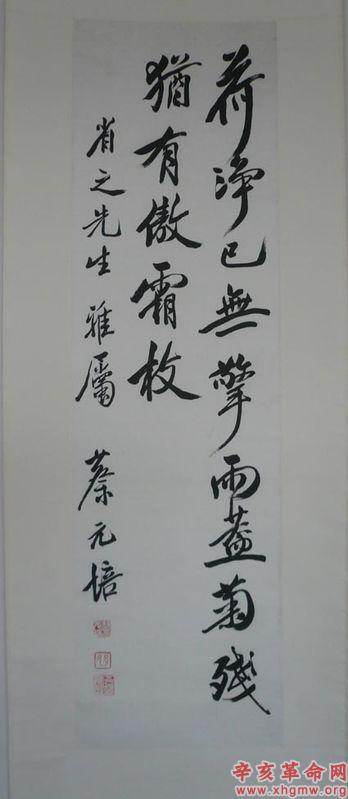 荷淨已無擎雨蓋菊殘
猶有傲霜枝
省之先生雅屬 蔡元培
辛亥革命网
www.xhgmw.org